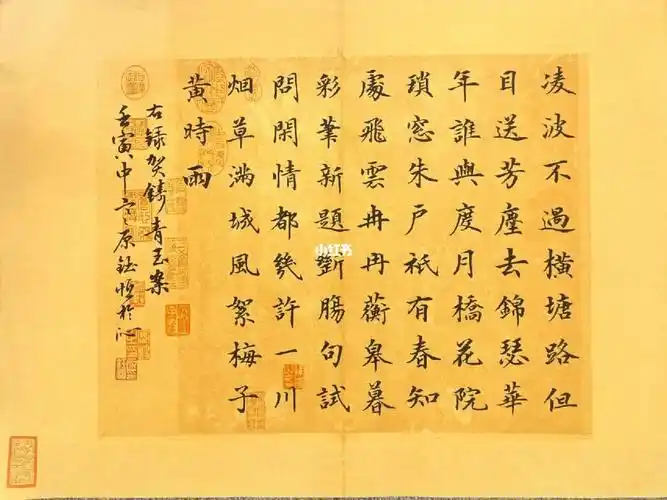 凌波不過橫塘路但
目送芳塵去錦瑟華
年誰與度月橋花院
瑣窓朱戶祇有春知
處飛雲冉冉蘅皋暮
彩筆新題斷腸句試
問閑情都幾許一川
烟草滿城風絮梅子
黃時雨
右録賀鑄青玉案
壬寅中
小红书